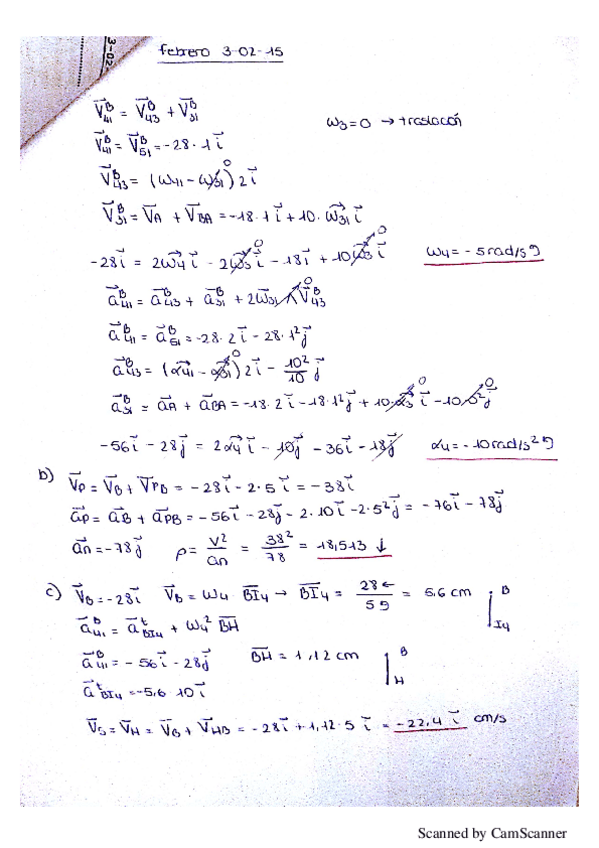 febrero 3-02-15
V⃗₄₁ᴮ = V⃗₄₃ᴮ + V⃗₃₁ᴮ
ω₃=0 → traslación
V⃗₄₁ᴮ = V⃗₅₁ᴮ = -28·1 i⃗
V⃗₄₃ᴮ = (ω₄₁ - ω₃₁) 2 i⃗
0
V⃗₃₁ᴮ = V⃗A + V⃗BA = -18·1 i⃗ + 10·ω⃗₃₁ i⃗
-28 i⃗ = 2ω⃗₄ i⃗ - 2ω⃗₃ i⃗ - 18 i⃗ + 10 ω⃗₃ i⃗
0 0
ω₄ = -5 rad/s ↻
a⃗₄₁ᴮ = a⃗₄₃ᴮ + a⃗₃₁ᴮ + 2ω⃗₃₁ ∧ V⃗₄₃ᴮ
0
a⃗₄₁ᴮ = a⃗₅₁ᴮ = -28·2 i⃗ - 28·1² j⃗
a⃗₄₃ᴮ = (α⃗₄₁ - α⃗₃₁) 2 i⃗ - 10²/10 j⃗
0
a⃗₃₁ᴮ = a⃗A + a⃗BA = -18·2 i⃗ - 18·1² j⃗ + 10·α⃗₃ i⃗ - 10·0² j⃗
0 0
-56 i⃗ - 28 j⃗ = 2α⃗₄ i⃗ - 10 j⃗ - 36 i⃗ - 18 j⃗
α₄ = -10 rad/s² ↻
b) V⃗P = V⃗B + V⃗PB = -28 i⃗ - 2·5 i⃗ = -38 i⃗
a⃗P = a⃗B + a⃗PB = -56 i⃗ - 28 j⃗ - 2·10 i⃗ - 2·5² j⃗ = -76 i⃗ - 78 j⃗
a⃗n = -78 j⃗ ρ = V²/an = 38²/78 = 18,513 ↓
c) V⃗B = -28 i⃗ V⃗B = ω₄·B̅I̅₄ → B̅I̅₄ = 28←/5↻ = 5,6 cm
B
I₄
a⃗₄₁ᴮ = a⃗ᵗBI₄ + ω₄² B̅H̅
a⃗₄₁ᴮ = -56 i⃗ - 28 j⃗ B̅H̅ = 1,12 cm
B
H
a⃗ᵗBI₄ = -5,6·10 i⃗
V⃗S = V⃗H = V⃗B + V⃗HB = -28 i⃗ + 1,12·5 i⃗ = -22,4 i⃗ cm/s
Scanned by CamScanner